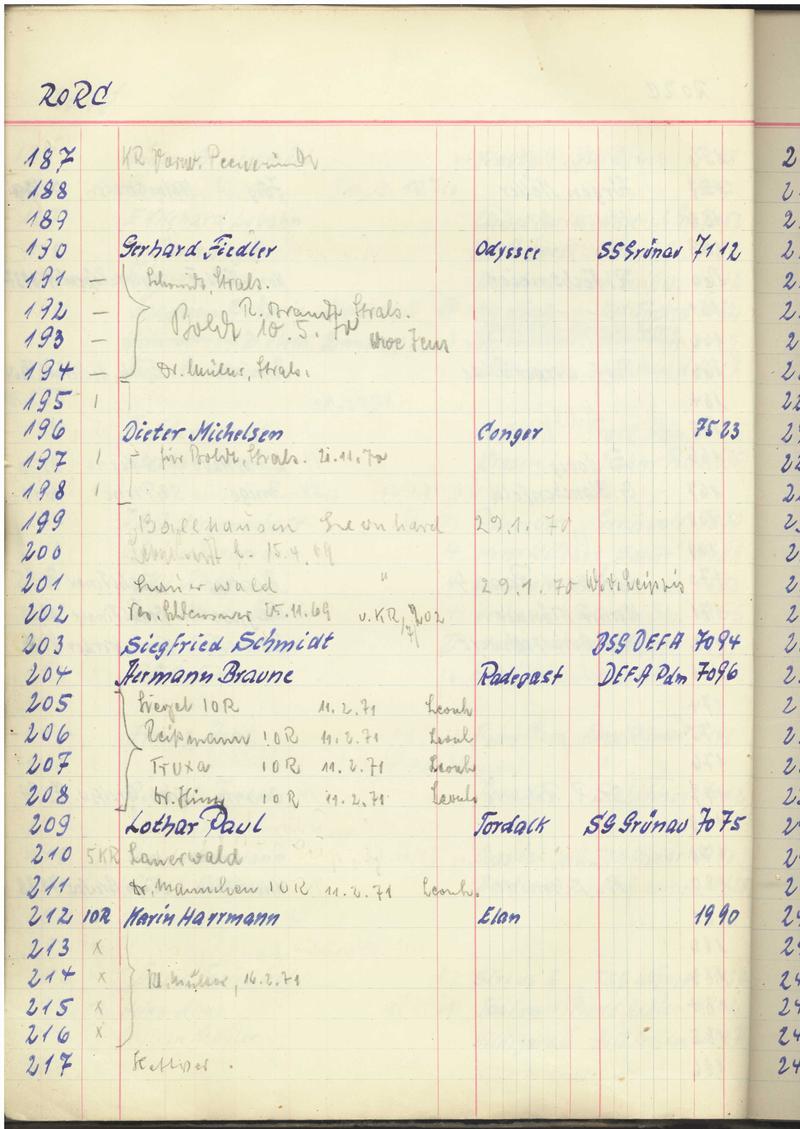 RORC
187 KR Vorw. Peenemünde
188
189
190 Gerhard Fiedler Odyssee SSGrünau 7112
191 — Schmidt, Strals.
192 — R. Brandt, Strals.
193 — Boldt 10.5.70
194 — Dr. Müller, Strals.
195 ı
196 Dieter Michelsen Conger 7523
197 ı für Boldt, Strals. 21.11.70
198 ı
199 Ballhausen Leonhard 29.1.70
200 15.4.69
201 Lauerwald " 29.1.70
202 25.11.69 v. KR 202
203 Siegfried Schmidt BSG DEFA 7094
204 Hermann Braune Radegast DEFA Pdm 7096
205 Siegel 10R 11.2.71 Leonh
206 Reißmann 10R 11.2.71 Leonh
207 Truxa 10R 11.2.71 Leonh
208 Dr. Hinz 10R 11.2.71 Leonh
209 Lothar Paul Tordalk SG Grünau 7075
210 5KR Lauerwald
211 Dr. Männchen 10R 11.2.71 Leonh.
212 10R Karin Harrmann Elan 1990
213 x
214 x M. Müller, 16.2.71
215 x
216 x
217